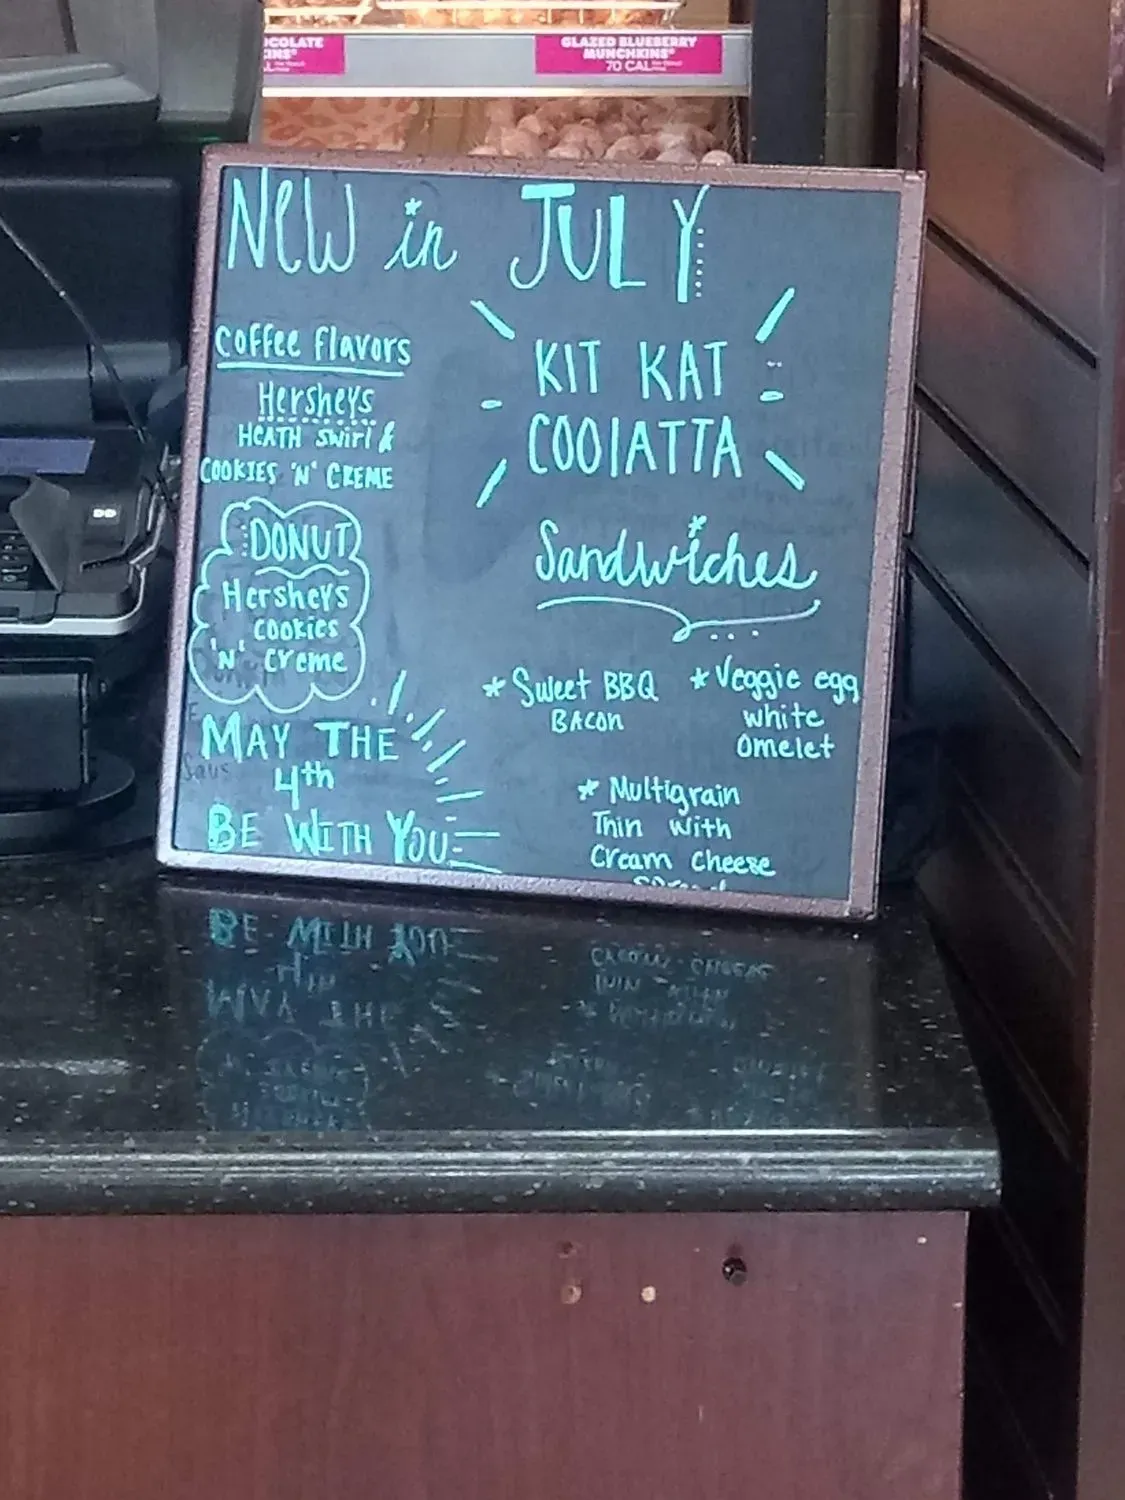 COLATE
KINS®
GLAZED BLUEBERRY
MUNCHKINS®
70 CAL
New in JULY
coffee flavors
Hersheys
HEATH swirl &
COOKIES 'N' CREME
DONUT
Hersheys
cookies
'N' creme
MAY THE
4th
BE WITH YOU
KIT KAT
COOlATTA
Sandwiches
* Sweet BBQ
BACON
* Veggie egg
white
omelet
* Multigrain
Thin with
Cream cheese